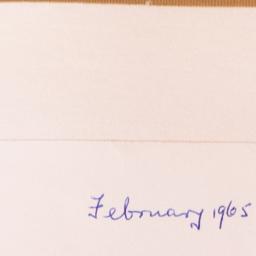 February 1965